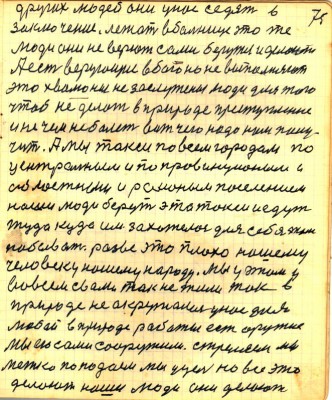 75
других людей они унос седят в
заключение. лежат в балници это же
люди они не верют сами берут и делают
А ест верующие в бога но не выполняют
это хвалоны не заслужены люди для того
чтоб не делат в природе преступление
и не чем не болет вот чего надо нам полу
чит. А мы такси по всем городам по
централным и по провинцыоным и
областным и раёным поселением
наши люди берут эта такси и едут
туда куда им захотелос для себя там
побыват. разве это плохо нашему
человеку нашему народу. мы у этом у
во всем сами так не жили так в
природе не окружалис у нас для
любой в природе работы ест оружие
мы его сами сооружили. стреляем мы
метко попадаем мы у цел но все это
делают наши люди они делают